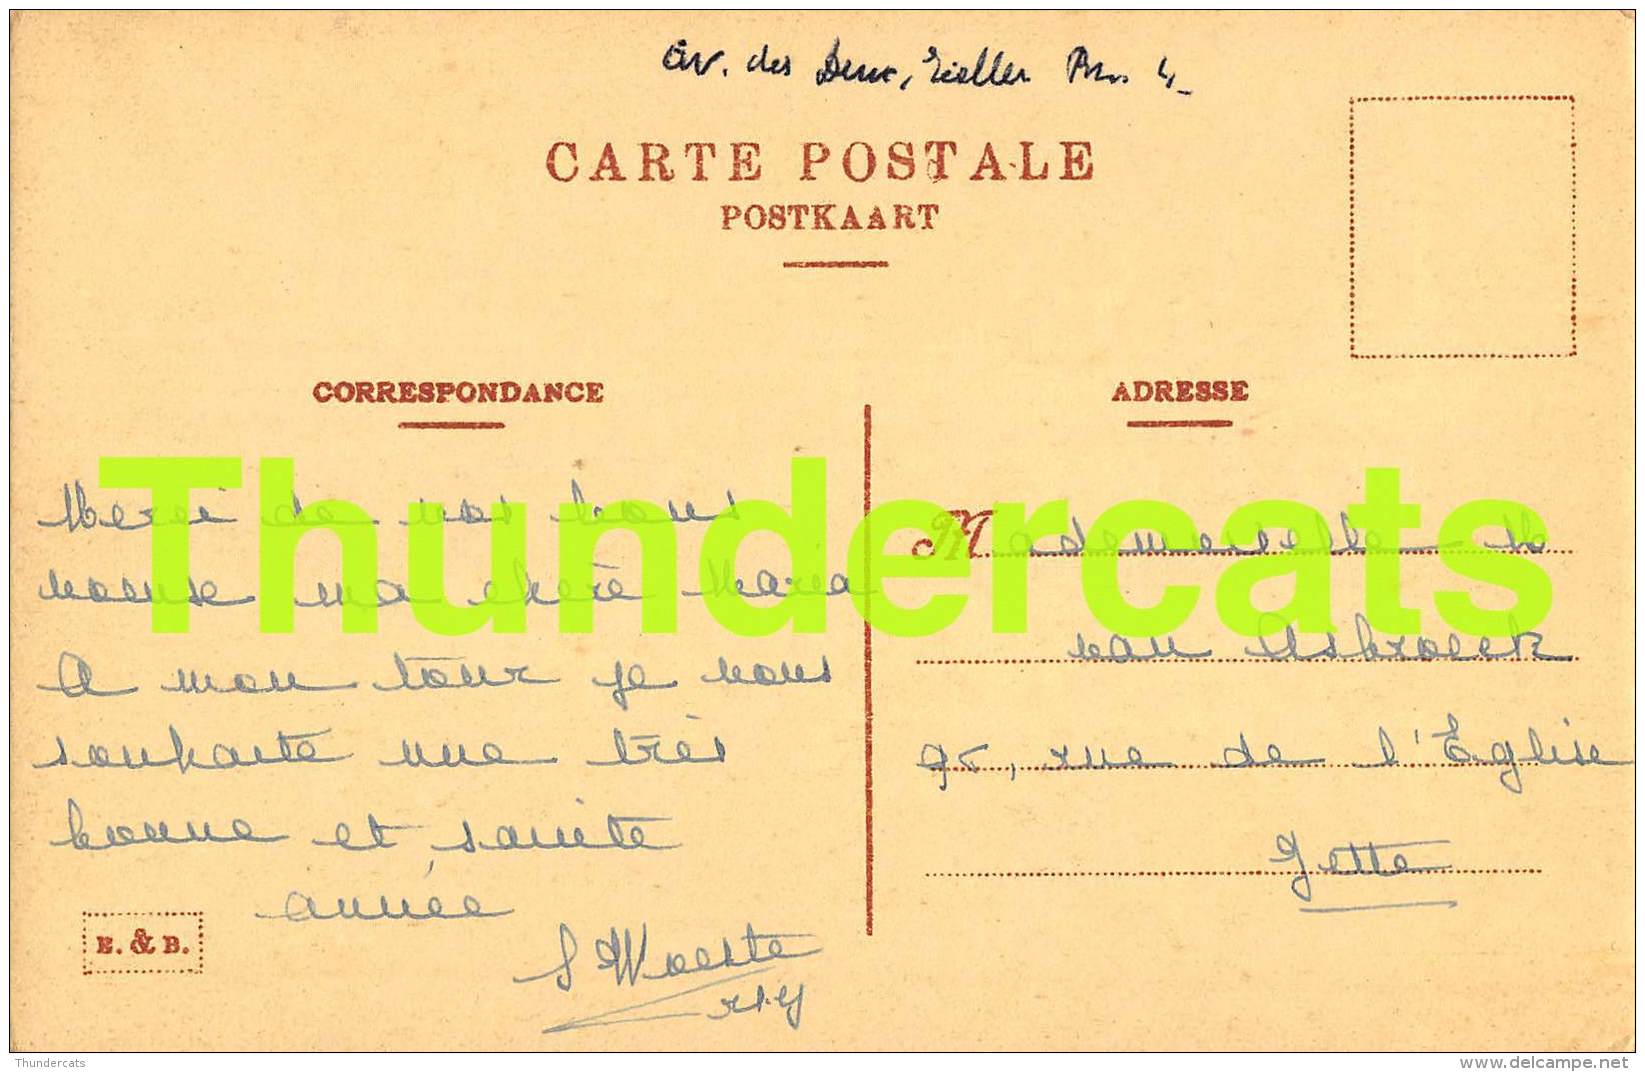 av. des Deux,
CARTE POSTALE
POSTKAART
CORRESPONDANCE
ADRESSE
Thundercats
Merci de vos bons
voeux ma chère Maria
A mon tour je vous
souhaite une très
bonne et sainte
année
S Woeste
E. & B.
Mademoiselle M
van Asbroeck
95, rue de l'Eglise
Jette
Thundercats
www.delcampe.net